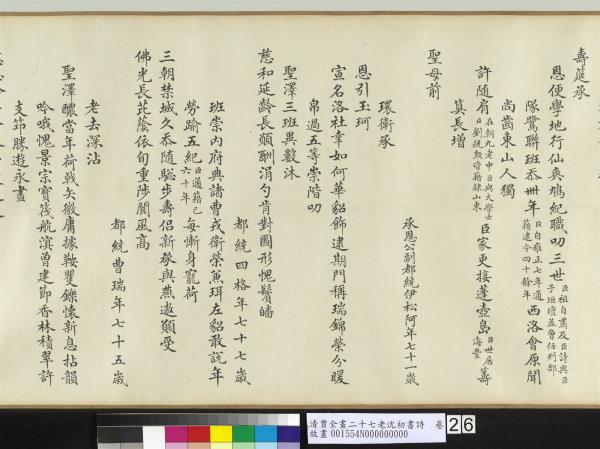 壽筵承
恩便學地行仙喪鳩紀職叨三世臣祖自肅及臣詩與臣子垣壇並曾任刑部
隊鷺聯班忝卌年臣自雍正七年通籍逮今四十餘年西洛會原聞
尚齒東山人獨
許隨肩在朝九老中臣與大學士臣劉統勳皆籍隸山東臣家更接蓬壺島臣世居海豐籌
筴長增
聖母前
承恩公副都統伊松阿年七十一歲
環衛承
恩引玉珂
宣名洛社幸如何華貂飾逮期門稱瑞錦榮分暖
帛過五等崇階叨
聖澤三班異數沐
慈和延齡長願酬涓勺肯對圖形愧鬢皤
都統四格年七十七歲
班崇內府典諸曹戎衛榮兼珥左貂敢說年
勞踰五紀臣通籍已六十年每慚身寵荷
三朝禁城久忝隨驄步壽侶新承與燕遨願受
佛光長芘蔭依旬重陟閬風高
都統曹瑞年七十五歲
老去深沾
聖澤醲當年荷戟矢微庸據鞍矍鑠懷新息拈韻
吟哦愧景宗寶筏航滇曾建節香林積翠許
支筇勝遊永晝
清賈全畫二十七老沈初書詩 卷 26
故畫 001554N000000000